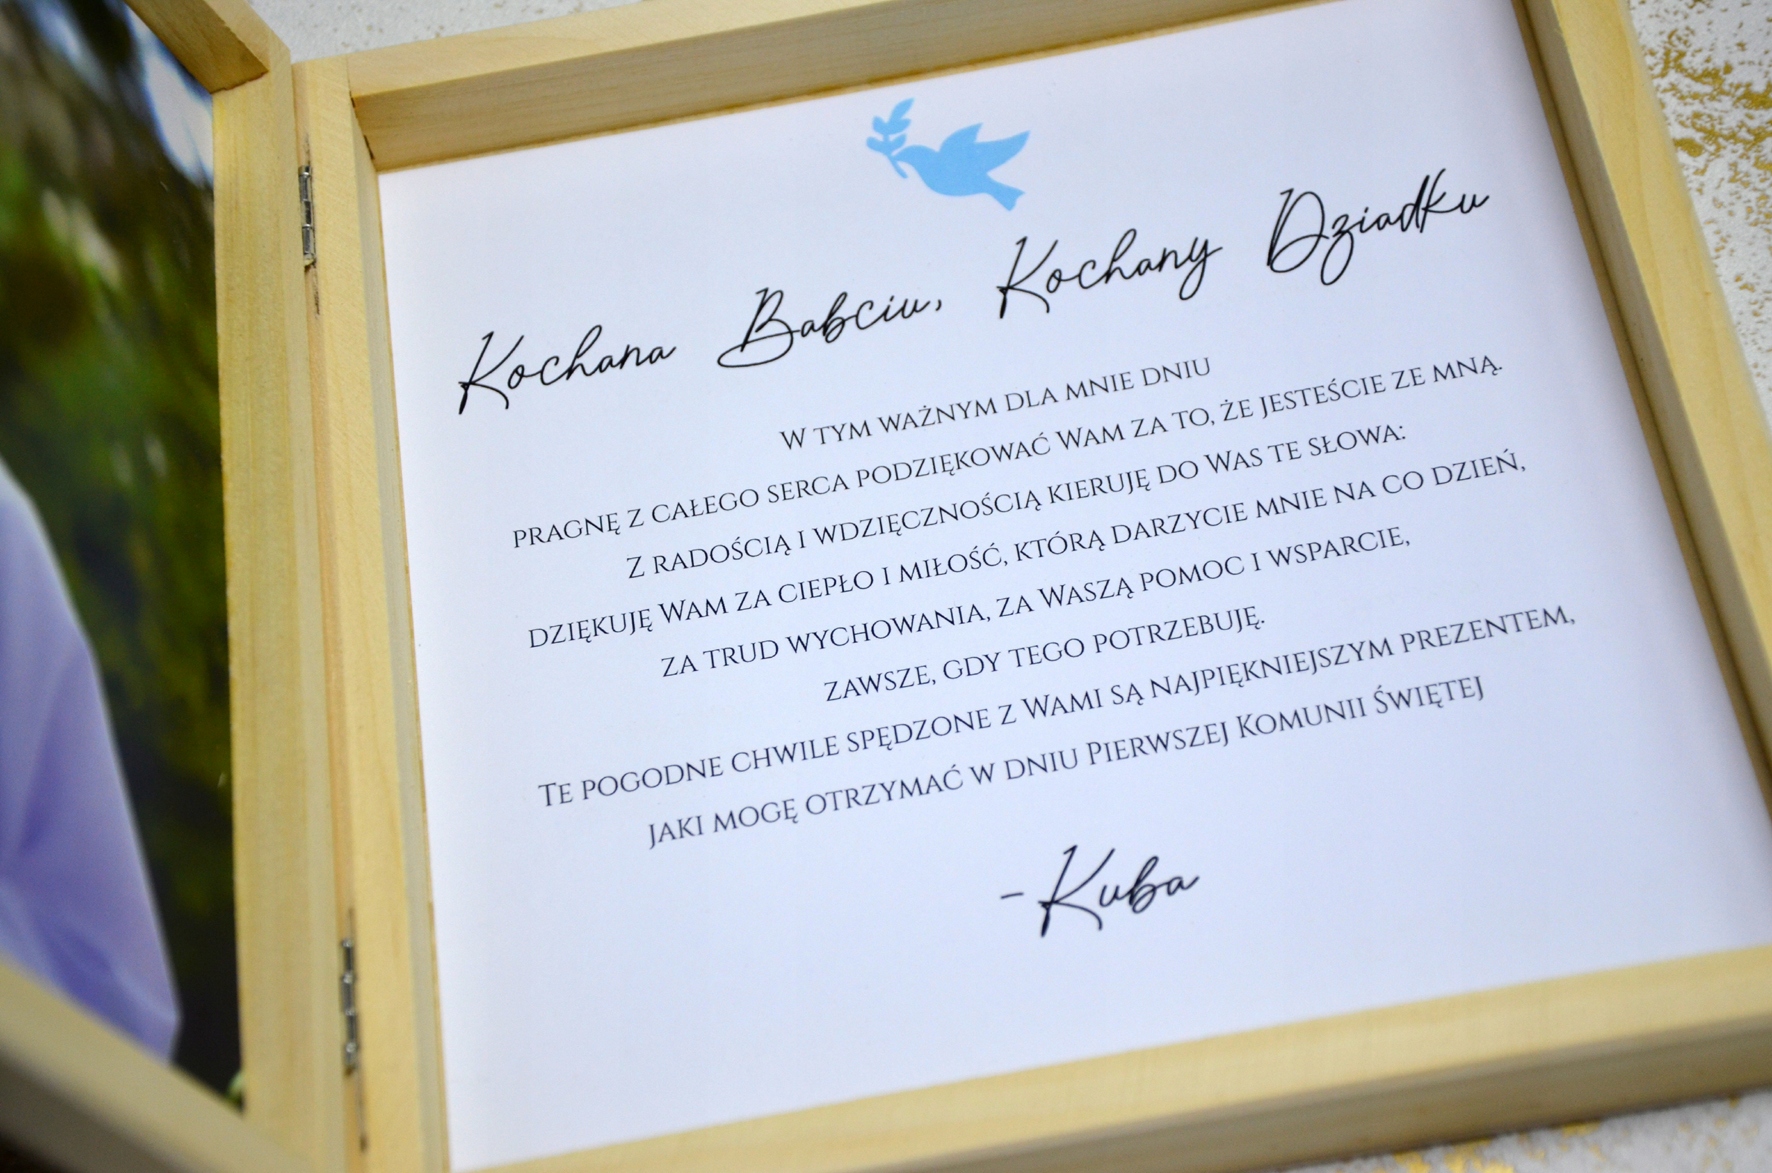 Kochana Babciu, Kochany Dziadku
W TYM WAŻNYM DLA MNIE DNIU
PRAGNĘ Z CAŁEGO SERCA PODZIĘKOWAĆ WAM ZA TO, ŻE JESTEŚCIE ZE MNĄ.
Z RADOŚCIĄ I WDZIĘCZNOŚCIĄ KIERUJĘ DO WAS TE SŁOWA:
DZIĘKUJĘ WAM ZA CIEPŁO I MIŁOŚĆ, KTÓRĄ DARZYCIE MNIE NA CO DZIEŃ,
ZA TRUD WYCHOWANIA, ZA WASZĄ POMOC I WSPARCIE,
ZAWSZE, GDY TEGO POTRZEBUJĘ.
TE POGODNE CHWILE SPĘDZONE Z WAMI SĄ NAJPIĘKNIEJSZYM PREZENTEM,
JAKI MOGĘ OTRZYMAĆ W DNIU PIERWSZEJ KOMUNII ŚWIĘTEJ
-Kuba